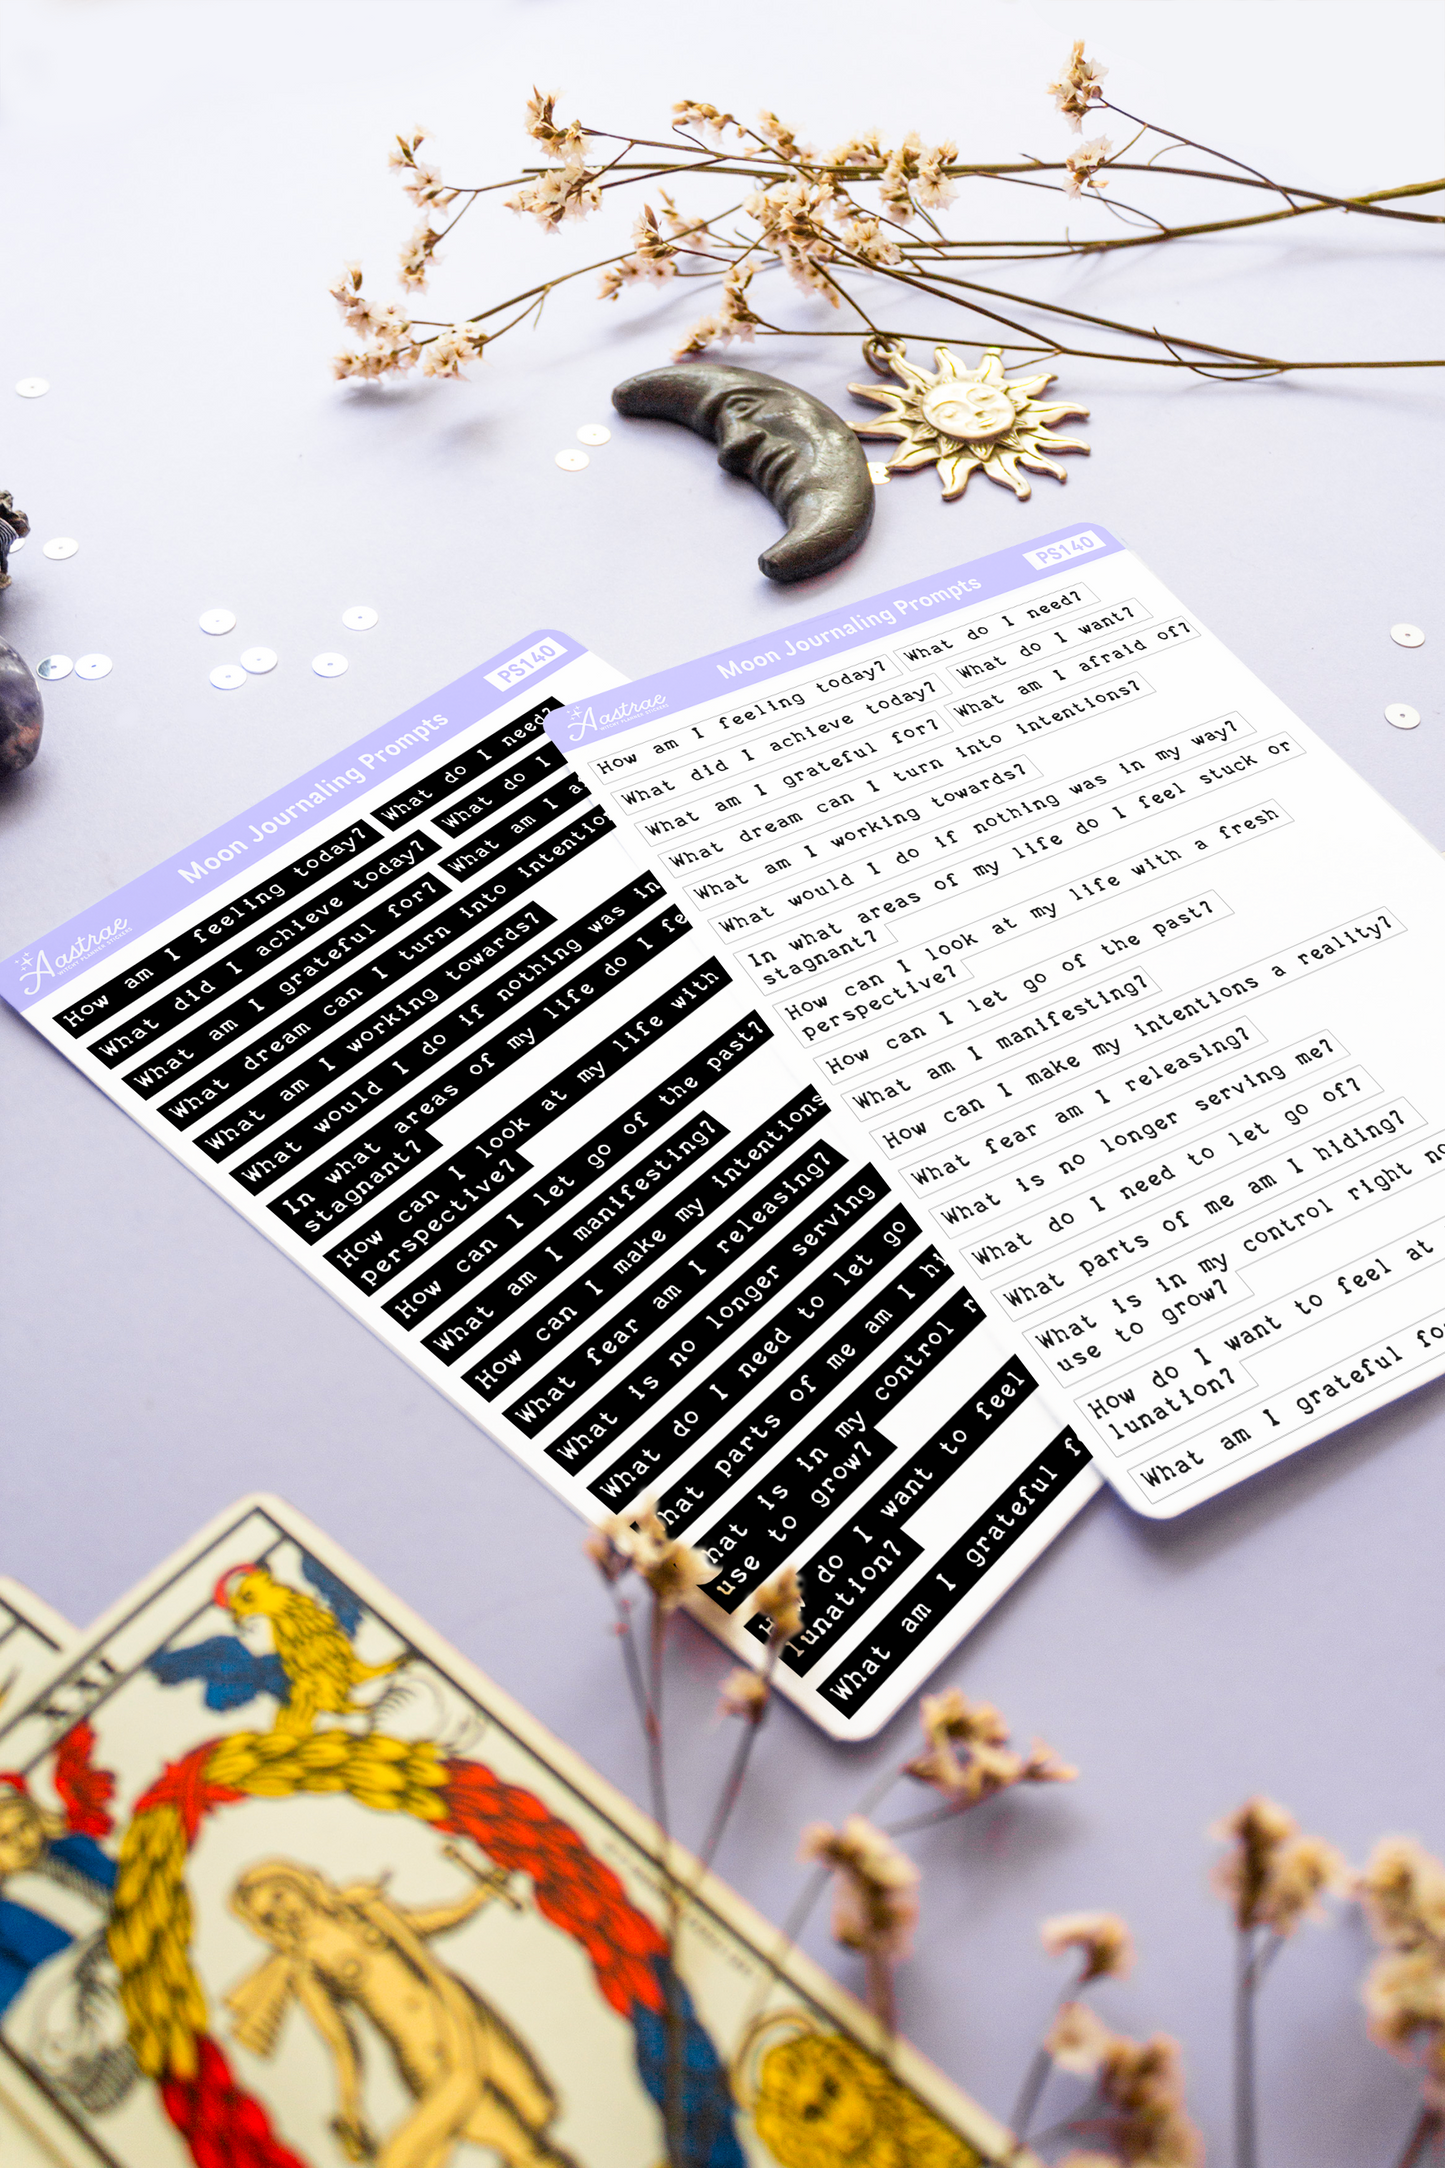 Aastrae
WITCHY PLANNER STICKERS
Moon Journaling Prompts
PS140
How am I feeling today?
What do I need?
What did I achieve today?
What do I
What am I grateful for?
What am I
What dream can I turn into
What am I working towards?
What would I do if nothing was in
In what areas of my life do I
stagnant?
How can I look at my life with
perspective?
How can I let go of the past?
What am I manifesting?
How can I make my intentions
What fear am I releasing?
What is no longer serving
What do I need to let go
parts of me am I
is in my control
use to grow?
do I want to feel
lunation?
What am I grateful
Aastrae
WITCHY PLANNER STICKERS
Moon Journaling Prompts
PS140
How am I feeling today?
What do I need?
What did I achieve today?
What do I want?
What am I grateful for?
What am I afraid of?
What dream can I turn into intentions?
What am I working towards?
What would I do if nothing was in my way?
In what areas of my life do I feel stuck or
stagnant?
How can I look at my life with a fresh
perspective?
How can I let go of the past?
What am I manifesting?
How can I make my intentions a reality?
What fear am I releasing?
What is no longer serving me?
What do I need to let go of?
What parts of me am I hiding?
What is in my control right
use to grow?
How do I want to feel at
lunation?
What am I grateful
XXI